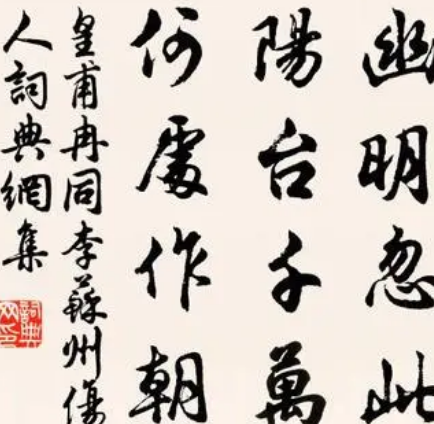 幽明忽此
陽台千萬
何處作朝
皇甫冉同李蘇州傷
人詞典網集
詞典